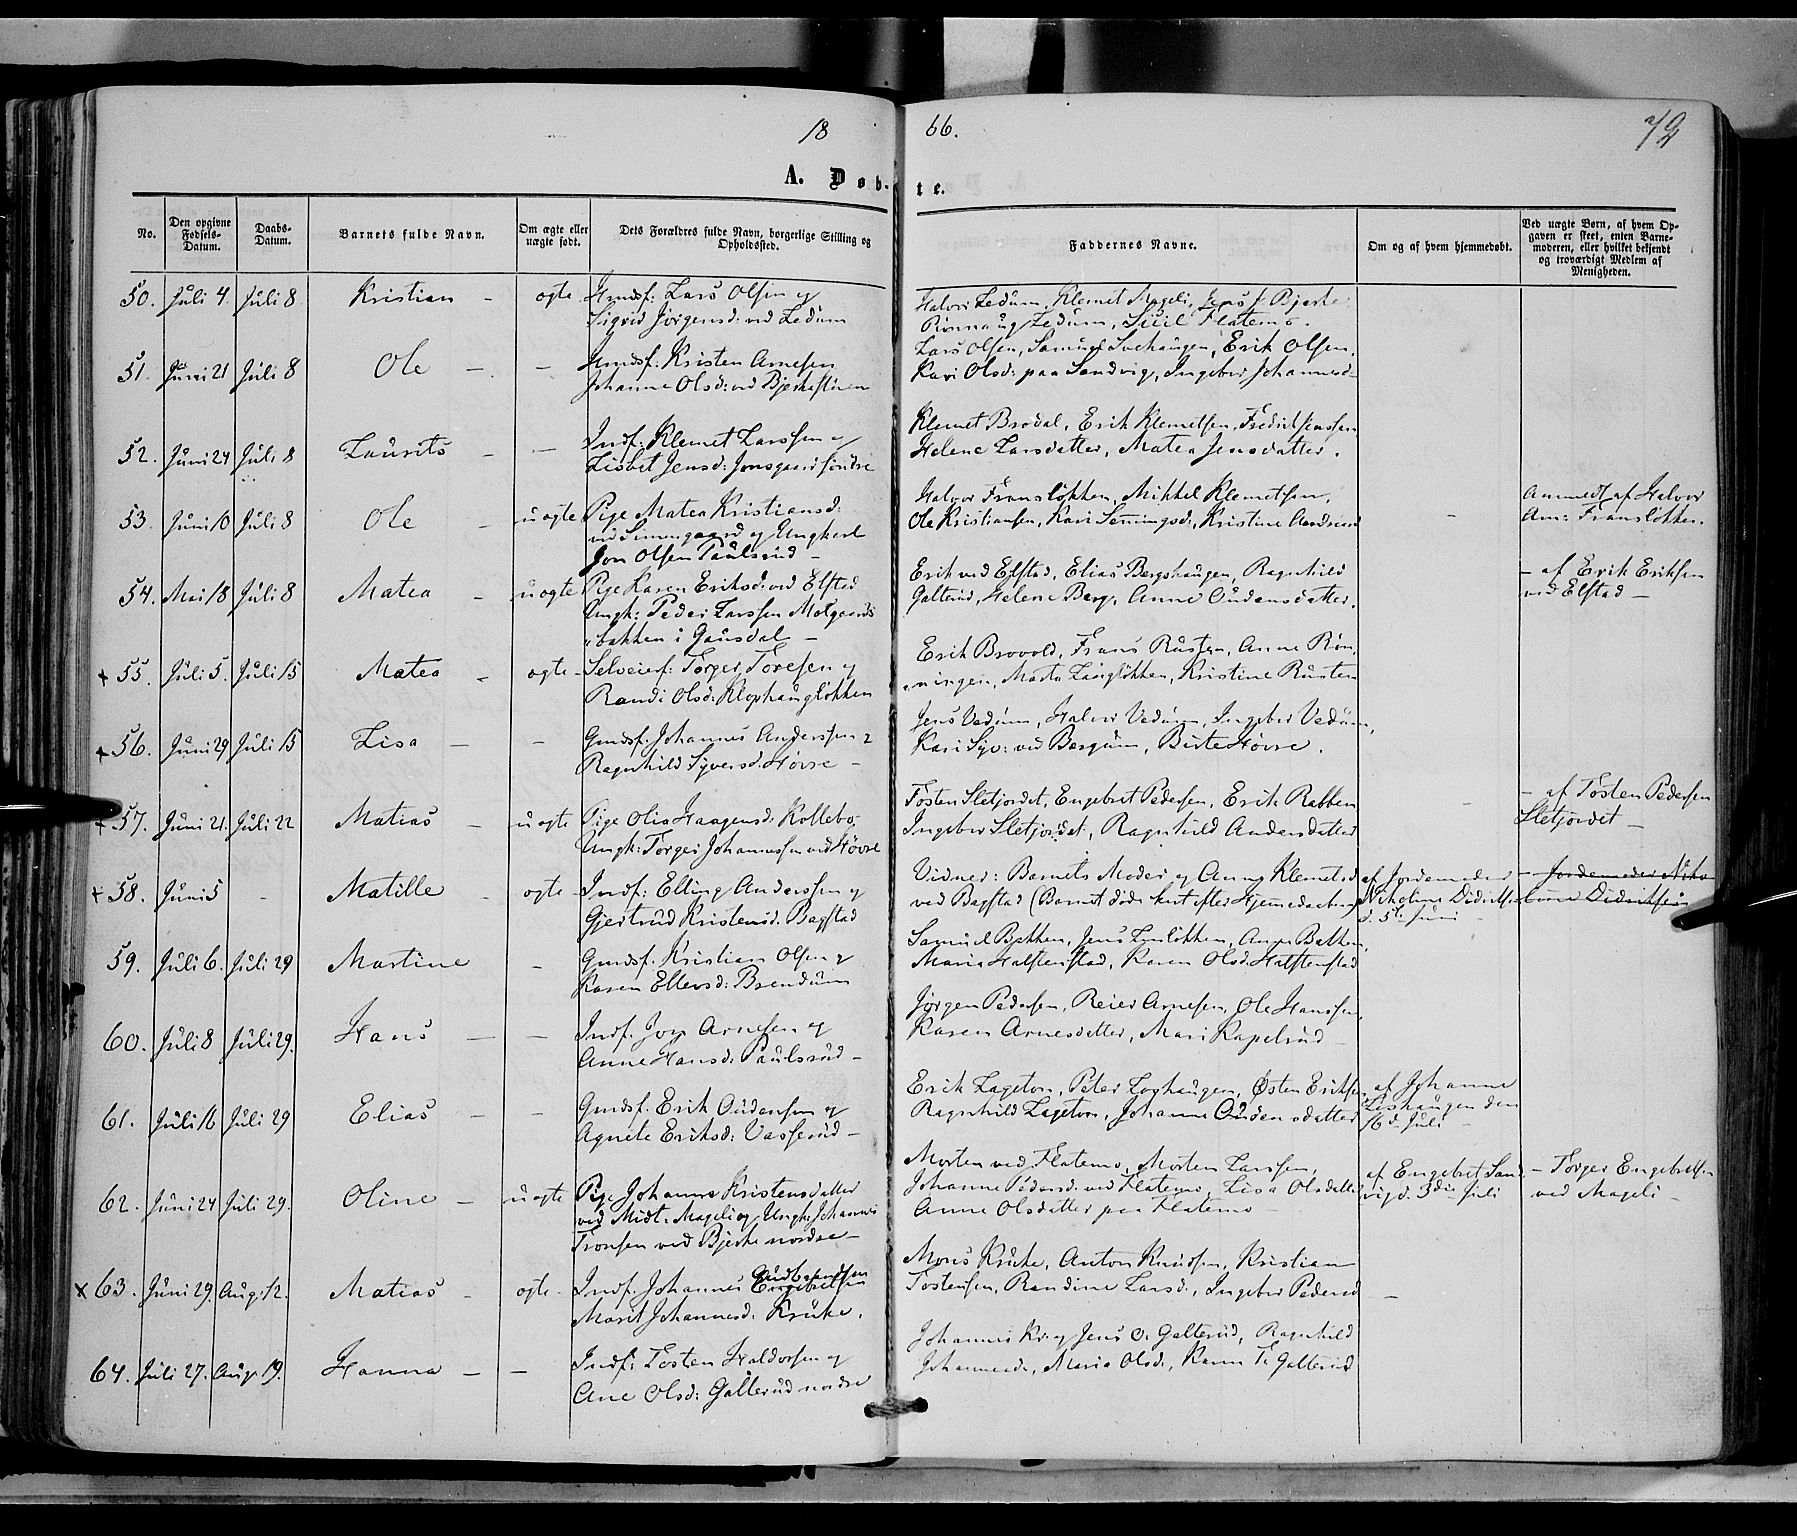 18 66.
72
A. Døbte.
No.
Den opgivne Fødsels-Datum.
Daabs-Datum.
Barnets fulde Navn.
Om ægte eller uægte født.
Dets Forældres fulde Navn, borgerlige Stilling og Opholdssted.
Faddernes Navne.
Om og af hvem hjemmedøbt.
Ved uægte Børn, af hvem Opgaven er skeet, enten Barnemoderen, eller hvilket bekjendt og troværdigt Medlem af Menigheden.
50. Juli 4. Juli 8 Kristian - ægte Gmdsf: Lars Olsen og
Sigrid Jörgensd: ved Ledum
Halvor Ledum, Klemet Mageli, Jens J. Bjerke
Rönnaug Ledum, Sicil Flatemo.
51. Juni 21 Juli 8 Ole - - Gmdsf: Kristen Arnesen
Johanne Olsd: ved
Lars Olsen, Samuel Svehaugen, Erik Olsen,
Kari Olsd: paa Sandvig, Ingebor Johannesd-
52. Juni 24 Juli 8 Laurits - - Indf: Klemet Larssen og
Lisbet Jensd: Jonsgaard söndre
Klemet Brodal, Erik Klemetsen, Fredrik Jenssen
Helene Larsdatter, Matea Jensdatter.
53. Juni 10 Juli 8 Ole - uægte Pige Matea Kristiansd:
ved og Ungkarl
Jon Olsen Paulsrud -
Halvor Franslökken, Mikkel Klemetsen,
Ole Kristiansen, Kari Semmingsd:, Kristine
Anmeldt af Halvor
Am: Franslökken.
54. Mai 18 Juli 8 Matea - uægte Pige Karen Eriksd: ved Elstad
Ungk: Peder Larssen
bakken i Gausdal -
Erik ved Elstad, Elias Bergshaugen, Ragnhild
Galterud, Helene Berg, Anne Oudensdatter.
- af Erik Eriksen
ved Elstad -
+ 55. Juli 5. Juli 15 Matea - ægte - Selveierf: Torger Toresen og
Randi Olsd: Klophauglökken
Erik Brovold, Frans Rusten, Anne Rön-
ningen, Marta Langlökken, Kristine Rusten
+ 56. Juni 29 Juli 15 Lisa - - Gmdsf. Johannes Anderssen og
Ragnhild Syversd. Hövre -
Jens Vedum, Halvor Vedum, Ingebor Vedum,
Kari Syv: ved Bergum, Birte Hövre.
+ 57. Juni 21. Juli 22 Matias - uægte Pige Olia Haagensd: Kollebo,
Ungk: Torger Johannessen ved Hövre
Tosten Sletjordet, Engebret Pedersen, Erik Rabben
Ingebor Sletjordet, Ragnhild Andersdatter
- af Tosten Pedersen
Sletjordet -
+ 58. Juni 5 - Matille - ægte - Indf: Elling Anderssen og
Gjertrud Kristensd. Bagstad
Vidner: Barnets Moder og Anne Klemetsd
ved Bagstad (Barnet döde kort efter Hjemmedaaben)
af Jordemoder
Nikoline Didriksen
d. 5te Juni -
- Jordemoder Niko
line Didriksen
59. Juli 6. Juli 29 Martine - Gmdsf. Kristian Olsen og
Karen Ellevsd: Brendum
Samuel Bakken, Jens Lenlökken, Anne Bakken,
Maria Halstenstad, Karen Olsd. Halstenstad
60. Juli 8 Juli 29. Hans - - Indf. Jon Arnesen og
Anne Hansd: Paulsrud -
Jörgen Pedersen, Reier Arnesen, Ole Hanssen,
Karen Arnesdatter, Mari Kapelrud -
61. Juli 16 Juli 29 Elias - - Gmdsf. Erik Oudensen og
Agnete Eriksd: Vasserud -
Erik Lageton, Peter Loshaugen, Østen Eriksen,
Ragnhild Lageton, Johanne Oudensdatter
af Johanne
Loshaugen den
16de Juli -
62. Juni 24 Juli 29. Oline - uægte Pige Johanne Kristensdatter
ved Midt: Mageli og Ungk: Johannes
Tronsen ved Bjerke nordre -
Morten ved Flatemo, Morten Larssen,
Johanne Pedersd: ved Flatemo, Lisa Olsdatter
Anne Olsdatter paa Flatemo -
af Engebret Sand
vig d. 3die Juli
- Torger Engebretsen
ved Mageli -
x 63. Juni 29. Aug. 12. Matias - ægte - Indf. Johannes Gudbrandsen
Marit Johannesd: Kruke.
Mons Kruke, Anton Knudsen, Kristian
Tostensen, Randine Larsd., Ingebor Pedersd -
64. Juli 27. Aug. 19. Hanna - - Indf: Tosten Haldorsen og
Ane Olsd: Galterud nordre
Johannes Kr. og Jens O. Galterud, Ragnhild
Johannesd., Maria Olsd., Karen T. Galterud